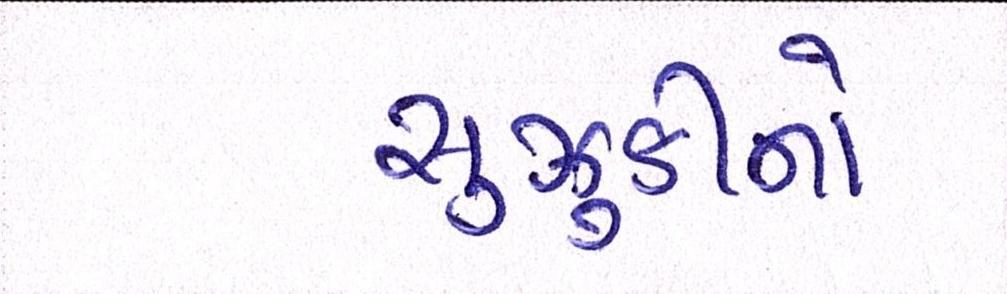 સુઝુકીનો